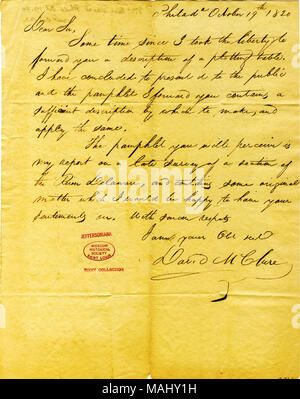 Philada October 19th 1820
Dear Sir,
Some time since I took the liberty to
forward you a description of a plotting table.
I have concluded to present it to the public
and the pamphlet I forward you contains a
sufficient description by which to make, and
apply the same.
The pamphlet you will perceive is
my report on a late survey of a section of
the River Delaware, and containing some original
matter which I should be happy to have your
sentiments on. With sincere respects
I am your Obt servt
David McClure
JEFFERSONIANA
MISSOURI
HISTORICAL
SOCIETY
SAINT LOUIS
BIXBY COLLECTION
alamy
Image ID: MAHY1H
www.alamy.com